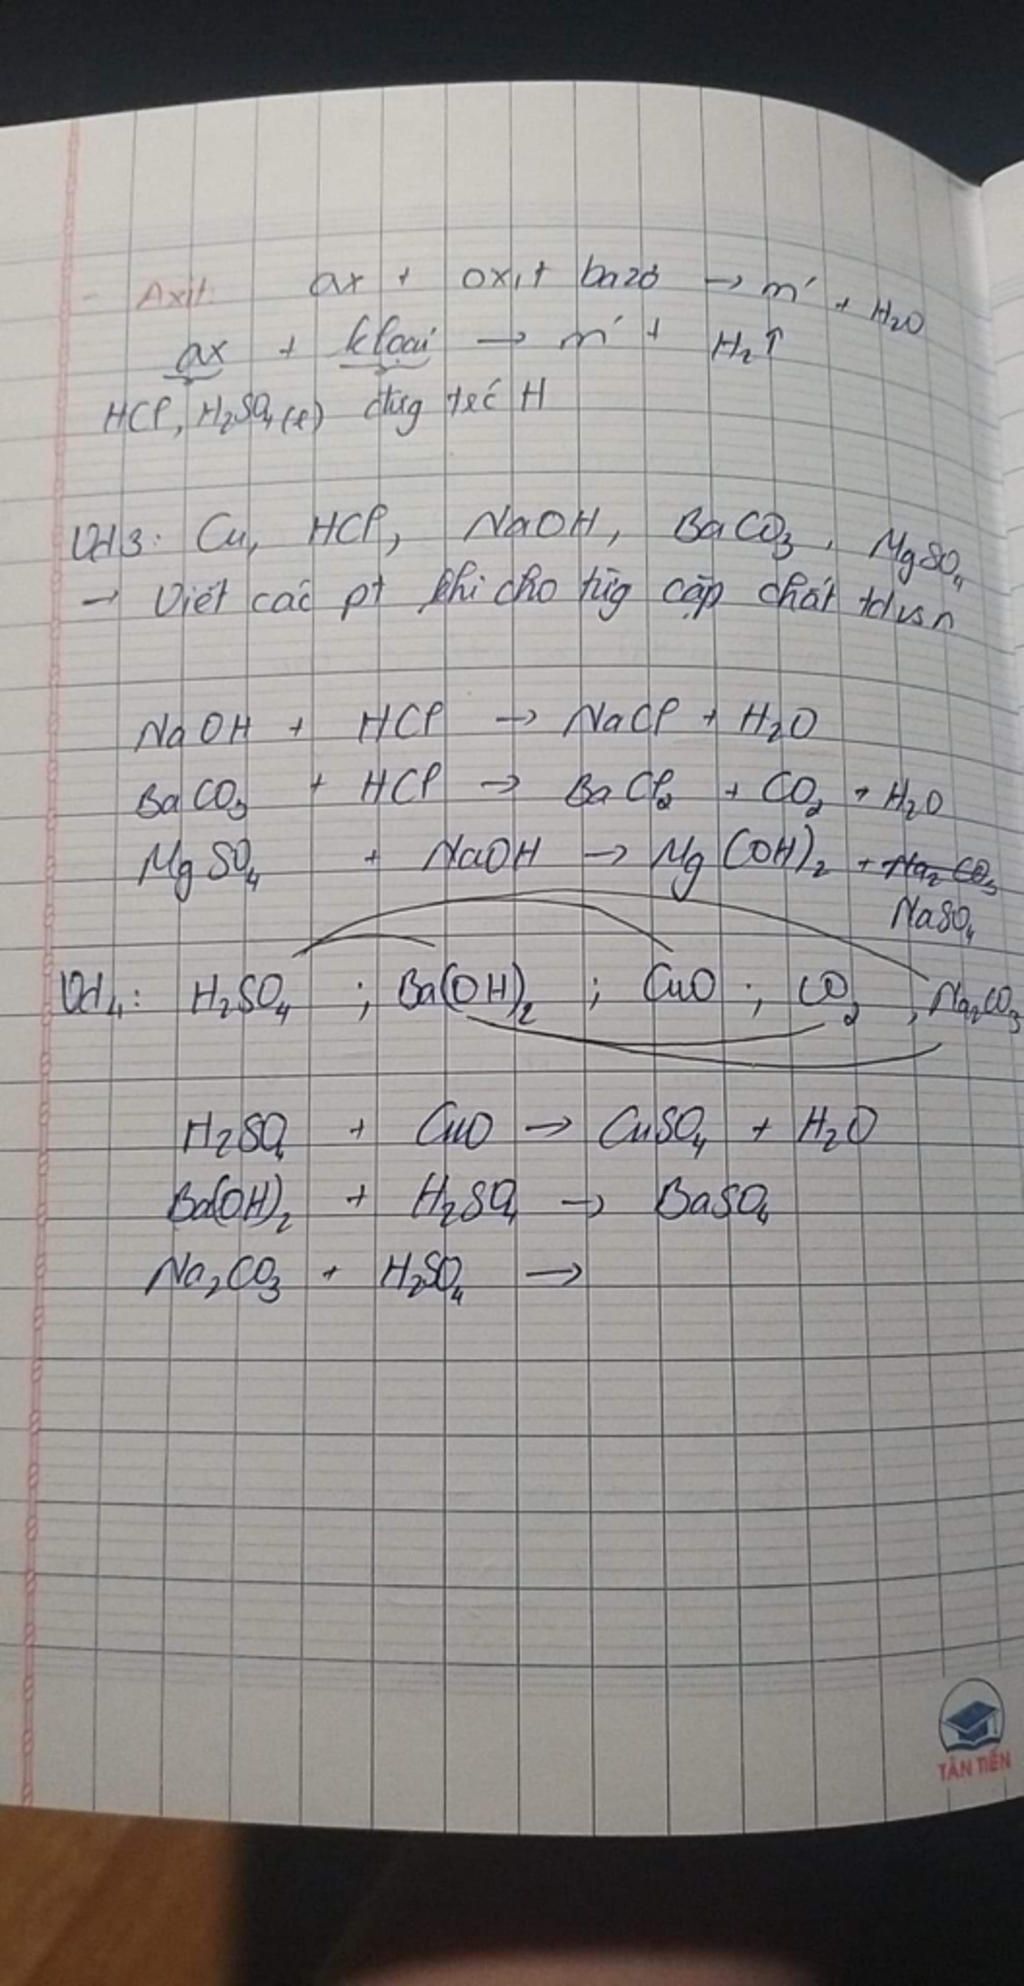 - Axit: ax + oxit bazơ → m' + H₂O
ax + kloại → m' + H₂↑
HCl, H₂SO₄(l) đứg trc' H
Vd3: Cu, HCl, NaOH, BaCO₃, MgSO₄
→ Viết các pt khi cho từg cặp chất tdvs n
NaOH + HCl → NaCl + H₂O
BaCO₃ + HCl → BaCl₂ + CO₂ + H₂O
MgSO₄ + NaOH → Mg(OH)₂ + Na₂CO₃
NaSO₄
Vd4: H₂SO₄ ; Ba(OH)₂ ; CuO ; CO₂ , Na₂CO₃
H₂SO₄ + CuO → CuSO₄ + H₂O
Ba(OH)₂ + H₂SO₄ → BaSO₄
Na₂CO₃ + H₂SO₄ →
TÂN TIẾN